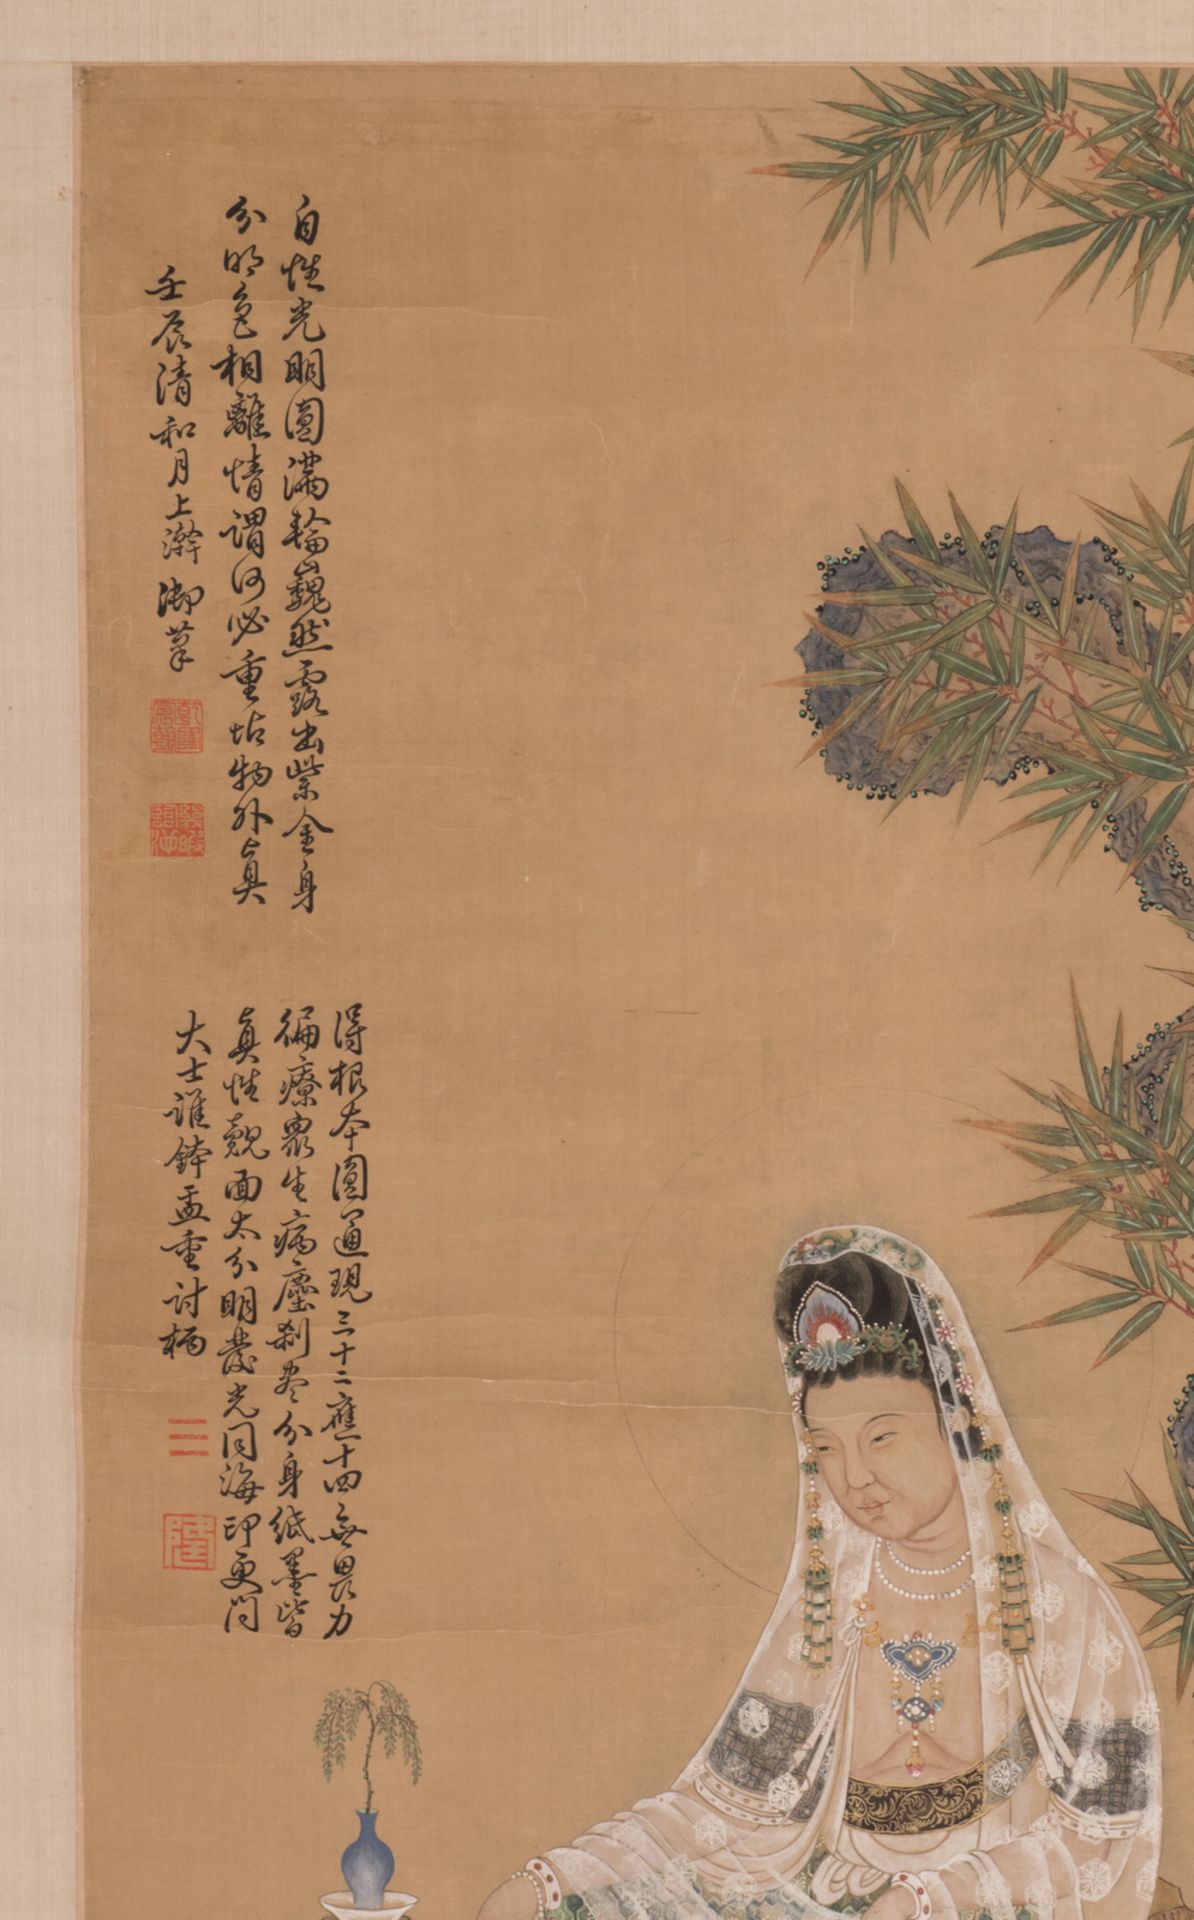 自性光明圓滿輪巍然露出紫金身
分明色相離情謂何必重拈物外真
壬辰清和月上澣御筆
乾隆宸翰
幾暇臨池
得根本圓通現三十二應十四無畏力
徧療眾生病塵剎盡分身紙墨皆
真性覿面太分明發光同海印更問
大士誰鉢盂重討柄
三
隆